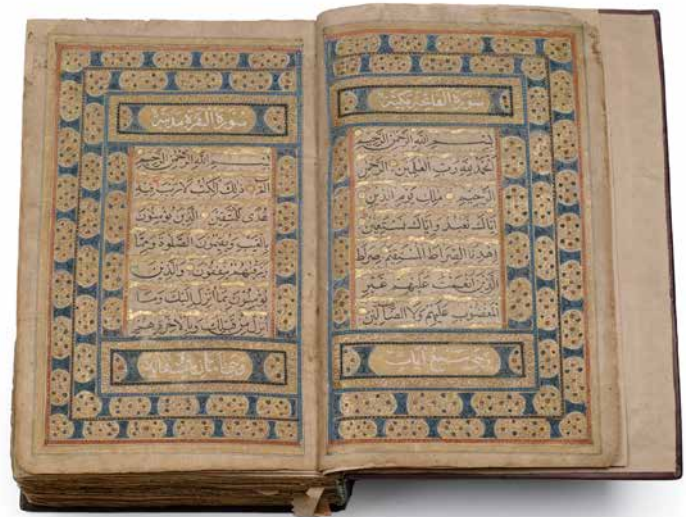 سورة الفاتحة مكية
بسم الله الرحمن الرحيم
الحمد لله رب العلمين الرحمن
الرحيم ملك يوم الدين
اياك نعبد واياك نستعين
اهدنا الصراط المستقيم صراط
الذين انعمت عليهم غير
المغضوب عليهم ولا الضالين
وهي سبع ايات
سورة البقرة مدنية
بسم الله الرحمن الرحيم
الم ذلك الكتب لا ريب فيه
هدى للمتقين الذين يؤمنون
بالغيب ويقيمون الصلوة ومما
رزقنهم ينفقون والذين
يؤمنون بما انزل اليك وما
انزل من قبلك وبالاخرة هم
وهي مائتان